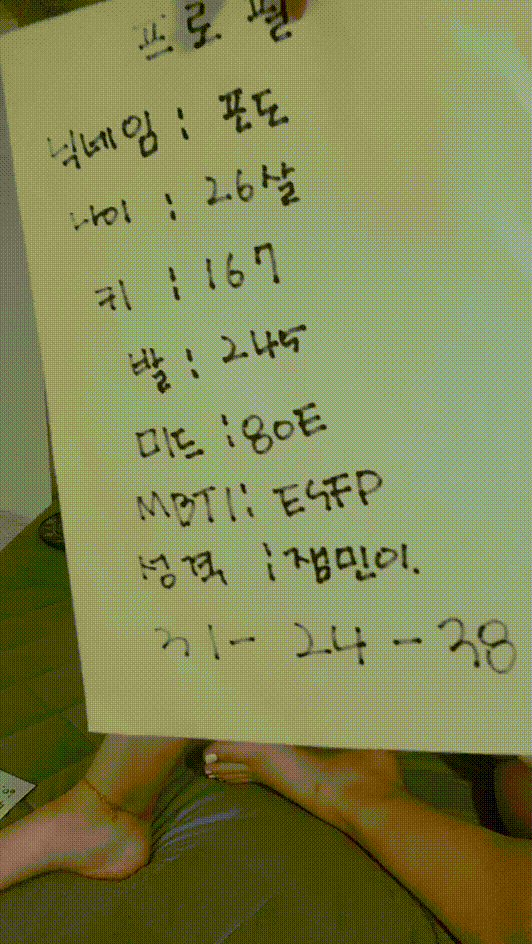 프로필
닉네임 : 포도
나이 : 26살
키 : 167
발 : 245
미드 : 80E
MBTI : ESFP
성격 : 잼민이.
31 - 24 - 38